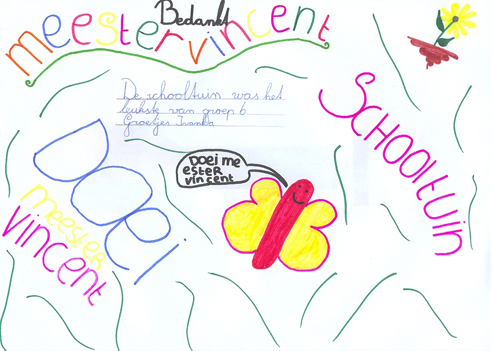 Bedankt
meester vincent
De schooltuin was het
leukste van groep 6
Groetjes Ivanka
SCHOOLtuin
DOEI me
ester
vincent
DOEi
meester
vincent